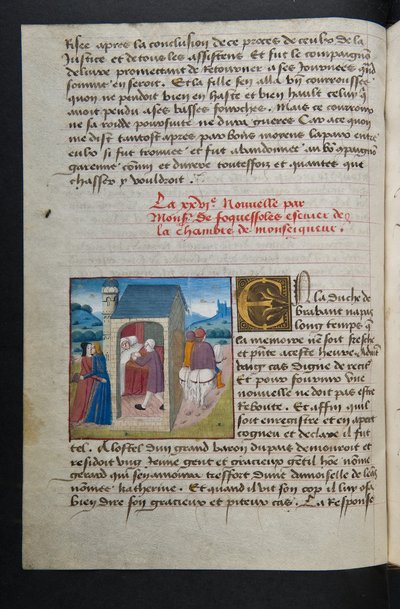 Risee apres la conclusion de ce proces de ceulx de la
Justice et de tous les assistens Et fut le compaignon
delivre promettant de Retourner a ses Journees quand
somme en seroit. Et la fille sen alla bien courroussee
quon ne pendoit bien en haste et bien hault celui qui
avoit pendu a ses basses fourches. Mais ce courroux
ne sa roidde poursuite ne dura gueres Car a ce quon
me dist tantost apres par bons moyens la paix entre
eulx si fut trouvee et fut abandonnee au bon compaignon
garenne conin et duree touteffois et quantes que
chasser y vouldroit
La xxvi.e Nouvelle par
Mons.r De foquessoles escuier de
la chambre de monseigneur.
En la duche de
brabant na pas
long temps que
la memoire nen soit fresche
et pnte a ceste heure Advint
ung cas digne de recit
Et pour fournir une
nouvelle ne doit pas estre
Reboute. Et affin quil
soit enregistre et en apert
cogneu et declare il fut
tel. A lostel dun grand baron du pais demouroit et
residoit ung Jeune gent et gracieux gentil hõe nõme
gerard qui sen amoura tresfort dune damoiselle de leãs
nõmee katherine. Et quand il vit son cop il lui osa
bien dire son gracieux et piteux cas. La Response